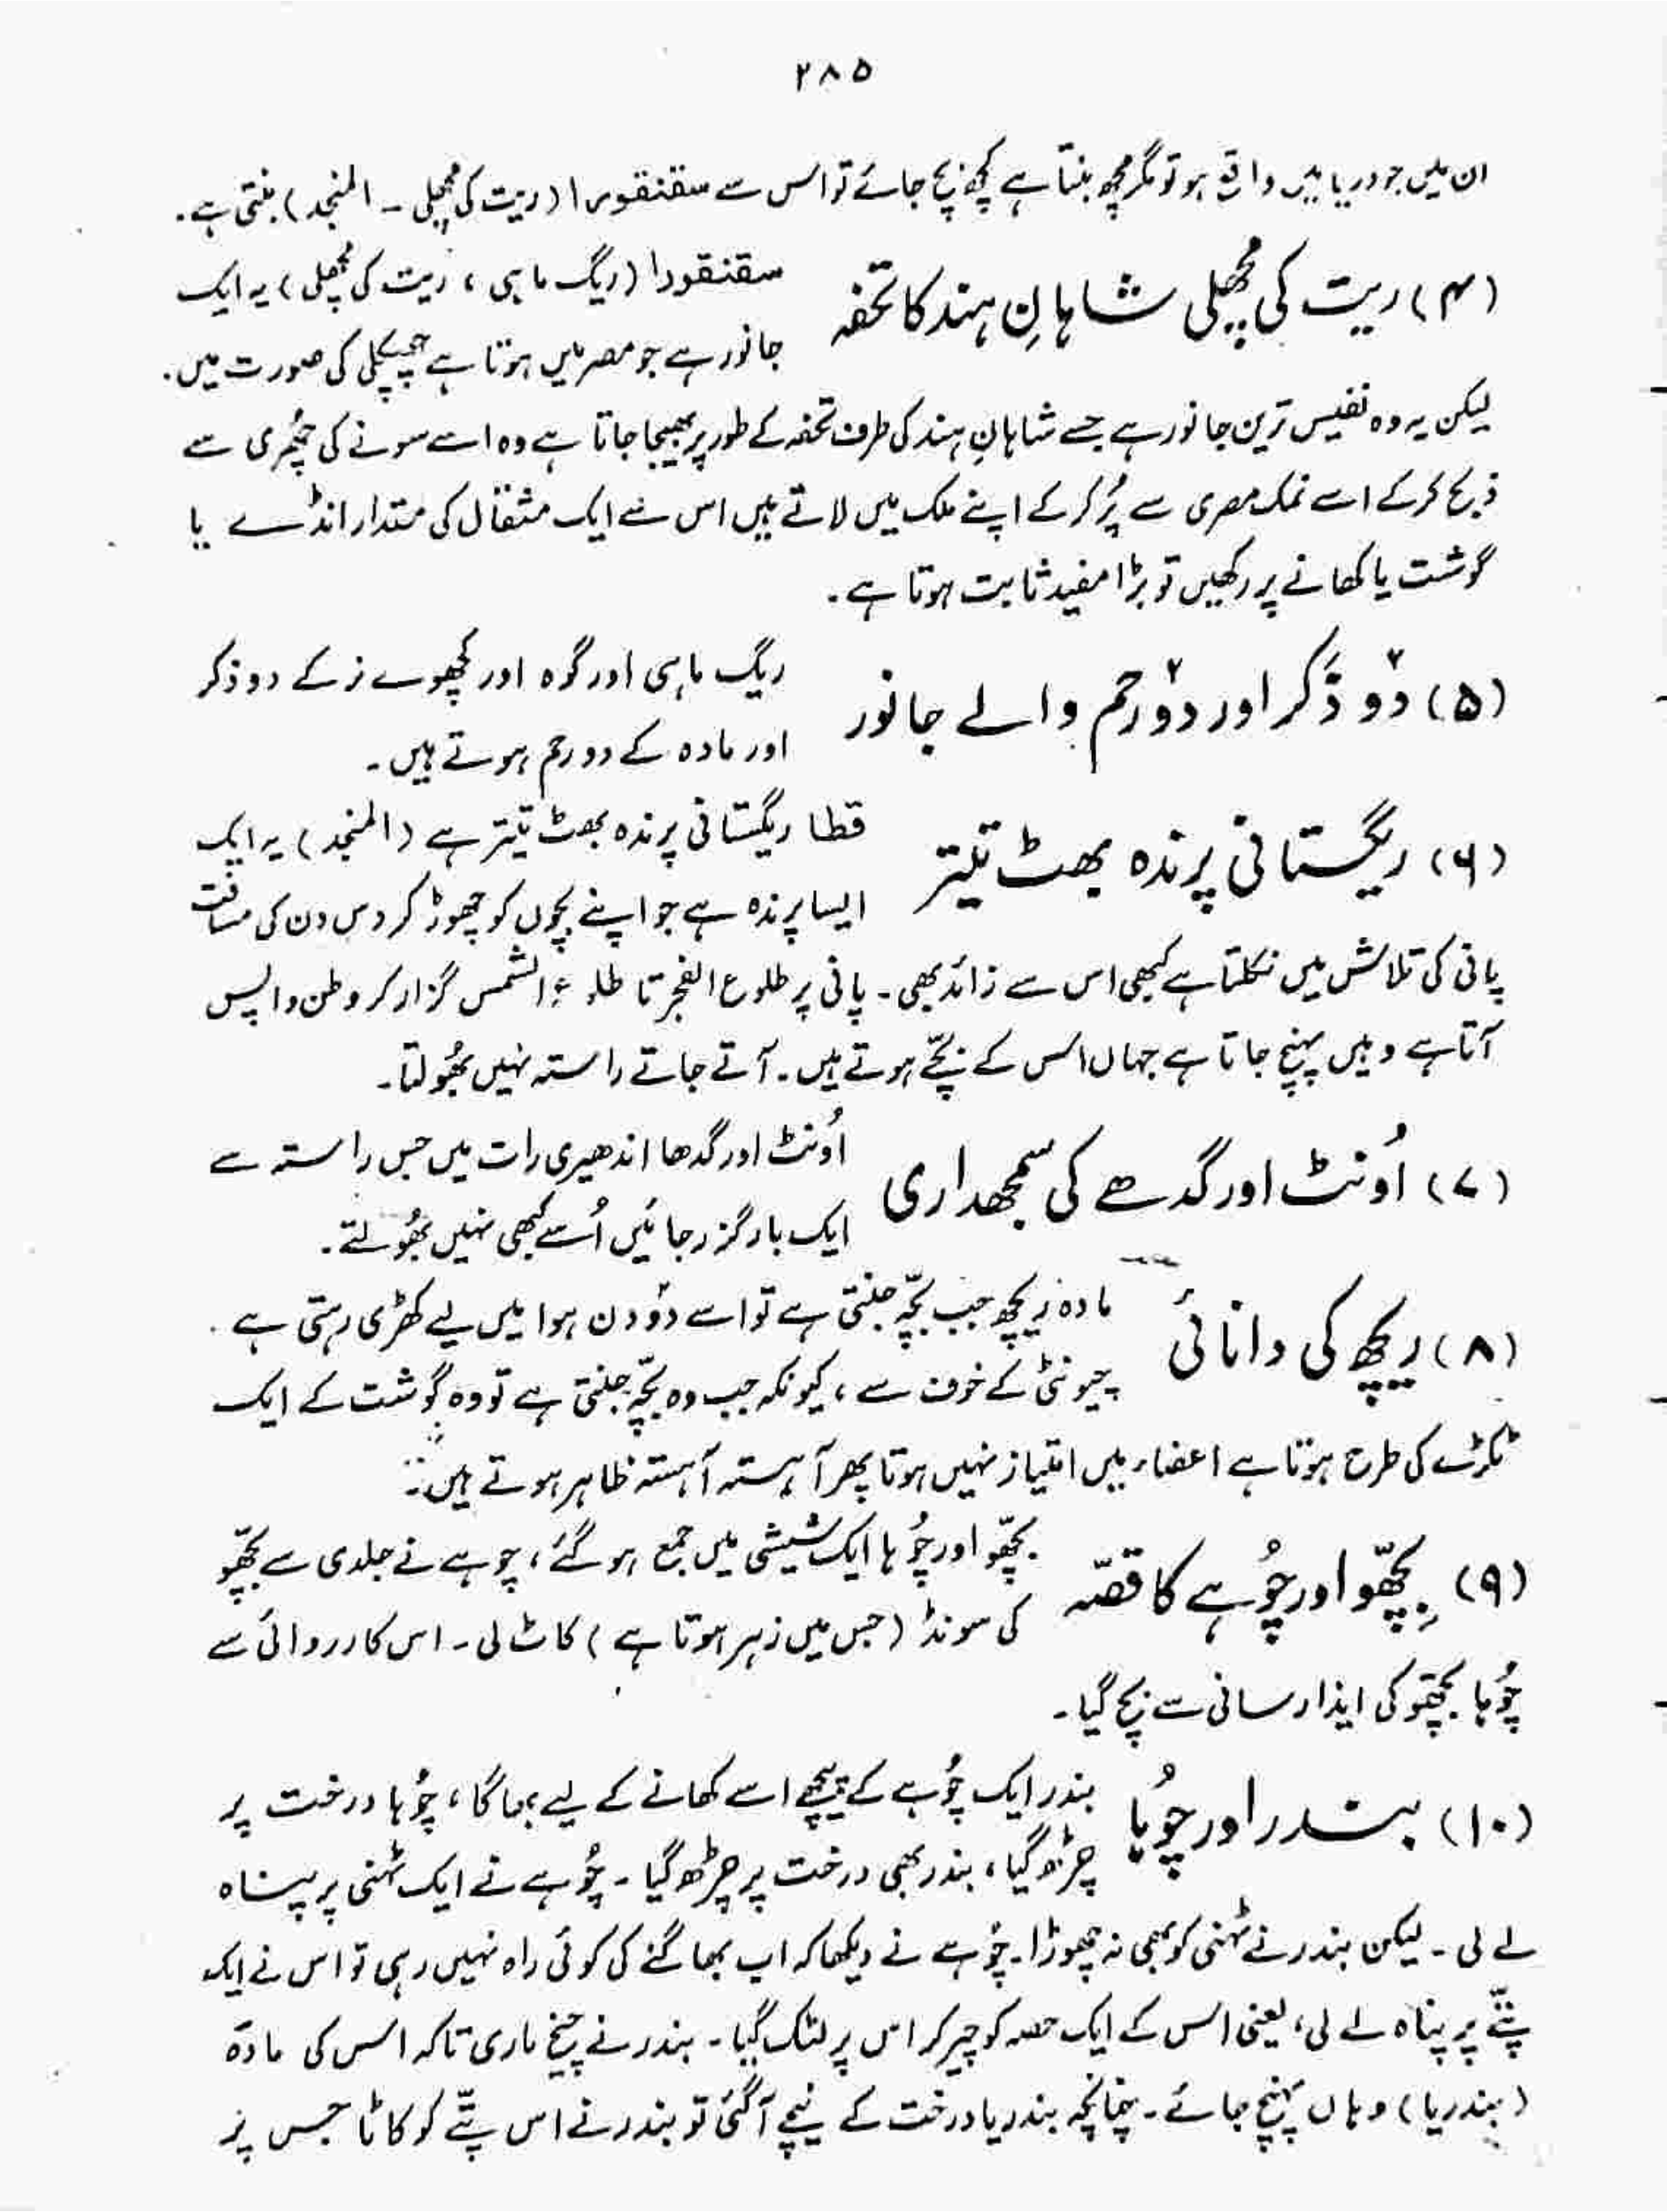 ۲۸۵
ان میں جو دریا میں واقع ہو تو مگرمچھ بنتا ہے کچھ بچ جائے تو اس سے سقنقورا (ریت کی مچھلی ۔ المنجد) بنتی ہے۔
(۴) ریت کی مچھلی شاہانِ ہند کا تحفہ
سقنقودا (ریگ ماہی ، ریت کی مچھلی) یہ ایک
جانور ہے جو مصر میں ہوتا ہے چھپکلی کی صورت میں۔
لیکن یہ وہ نفیس ترین جانور ہے جسے شاہانِ ہند کی طرف تحفہ کے طور پر بھیجا جاتا ہے وہ اسے سونے کی چھُری سے
ذبح کرکے اسے نمک مصری سے پُر کر کے اپنے ملک میں لاتے ہیں اس سے ایک مثقال کی مقدار انڈے یا
گوشت یا کھانے پر رکھیں تو بڑا مفید ثابت ہوتا ہے۔
(۵) دو ذَکر اور دو رحم والے جانور
ریگ ماہی اور گوہ اور کچھوے نر کے دو ذکر
اور مادہ کے دو رحم ہوتے ہیں ۔
(۶) ریگستانی پرندہ بھٹ تیتر
قطا ریگستانی پرندہ بھٹ تیتر ہے (المنجد) یہ ایک
ایسا پرندہ ہے جو اپنے بچوں کو چھوڑ کر دس دن کی مسافت
پانی کی تلاش میں نکلتا ہے کبھی اس سے زائد بھی ۔ پانی پر طلوع الفجر تا طلوع الشمس گزار کر وطن واپس
آتا ہے وہیں پہنچ جاتا ہے جہاں اس کے بچّے ہوتے ہیں ۔ آتے جاتے راستہ نہیں بھُولتا۔
(۷) اُونٹ اور گدھے کی سمجھداری
اُونٹ اور گدھا اندھیری رات میں جس راستہ سے
ایک بار گزر جائیں اُسے کبھی نہیں بھُولتے۔
(۸) ریچھ کی دانائی
مادہ ریچھ جب بچّہ جنتی ہے تو اسے دو دن ہوا میں لیے کھڑی رہتی ہے ۔
چیونٹی کے خوف سے ، کیونکہ جب وہ بچّہ جنتی ہے تو وہ گوشت کے ایک
ٹکڑے کی طرح ہوتا ہے اعضاء میں امتیاز نہیں ہوتا پھر آہستہ آہستہ ظاہر ہوتے ہیں ۔
(۹) بچھّو اور چُوہے کا قصّہ
بچھّو اور چُوہا ایک شیشی میں جمع ہوگئے ، چوہے نے جلدی سے بچھّو
کی سونڈ (جس میں زہر ہوتا ہے) کاٹ لی ۔ اس کارروائی سے
چُوہا بچھّو کی ایذا رسانی سے بچ گیا ۔
(۱۰) بندر اور چُوہا
بندر ایک چُوہے کے پیچھے اسے کھانے کے لیے بھاگا ، چُوہا درخت پر
چڑھ گیا ، بندر بھی درخت پر چڑھ گیا ۔ چُوہے نے ایک ٹہنی پر پناہ
لے لی ۔ لیکن بندر نے ٹہنی کو بھی نہ چھوڑا ۔ چُوہے نے دیکھا کہ اب بھاگنے کی کوئی راہ نہیں رہی تو اس نے ایک
پتّے پر پناہ لے لی ، یعنی اس کے ایک حصہ کو چیر کر اس پر لٹک گیا ۔ بندر نے چیخ ماری تاکہ اس کی مادہ
(بندریا) وہاں پہنچ جائے ۔ چنانچہ بندریا درخت کے نیچے آگئی تو بندر نے اس پتّے کو کاٹا جس پر